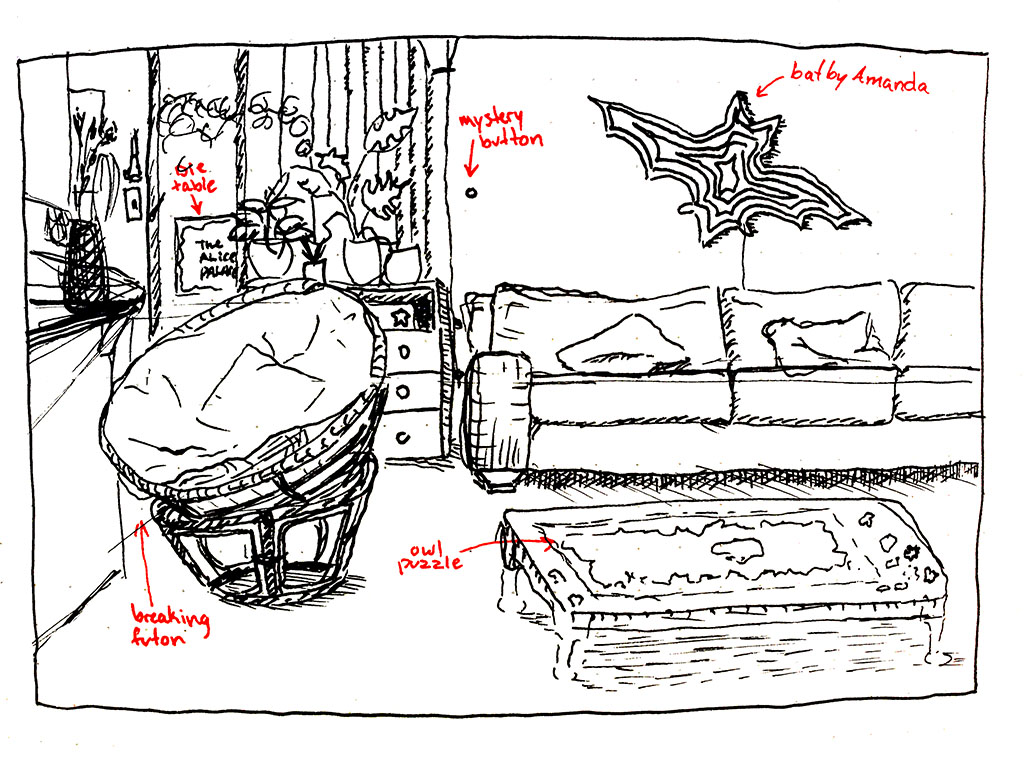 bat by Amanda
mystery
button
table
THE
ALICE
owl
puzzle
breaking
futon